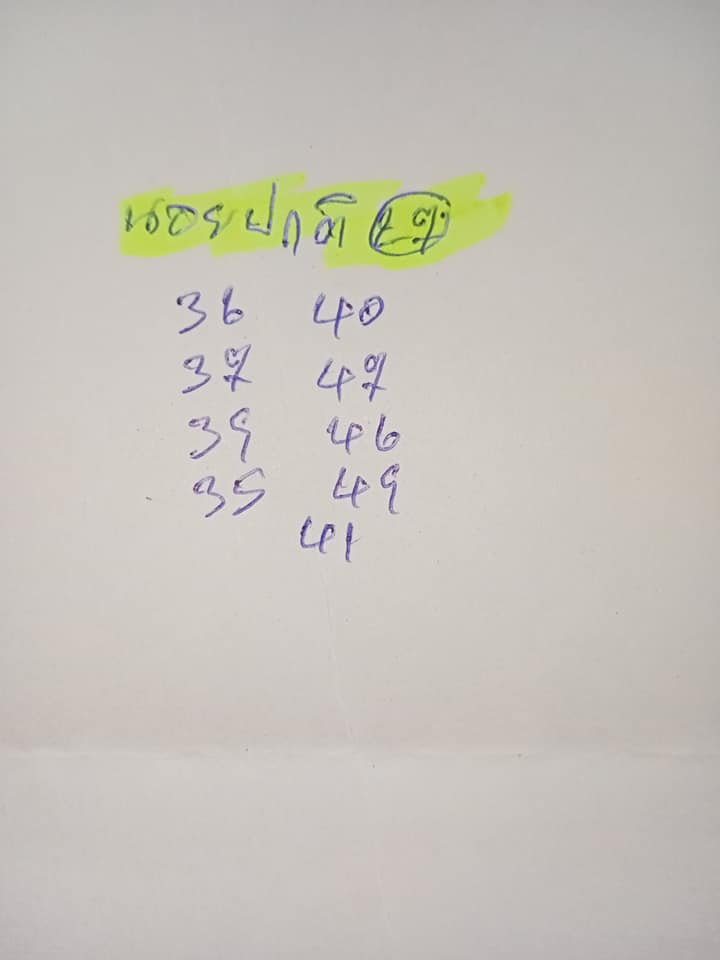 นอยปกติ
36 40
37 47
39 46
35 49
41